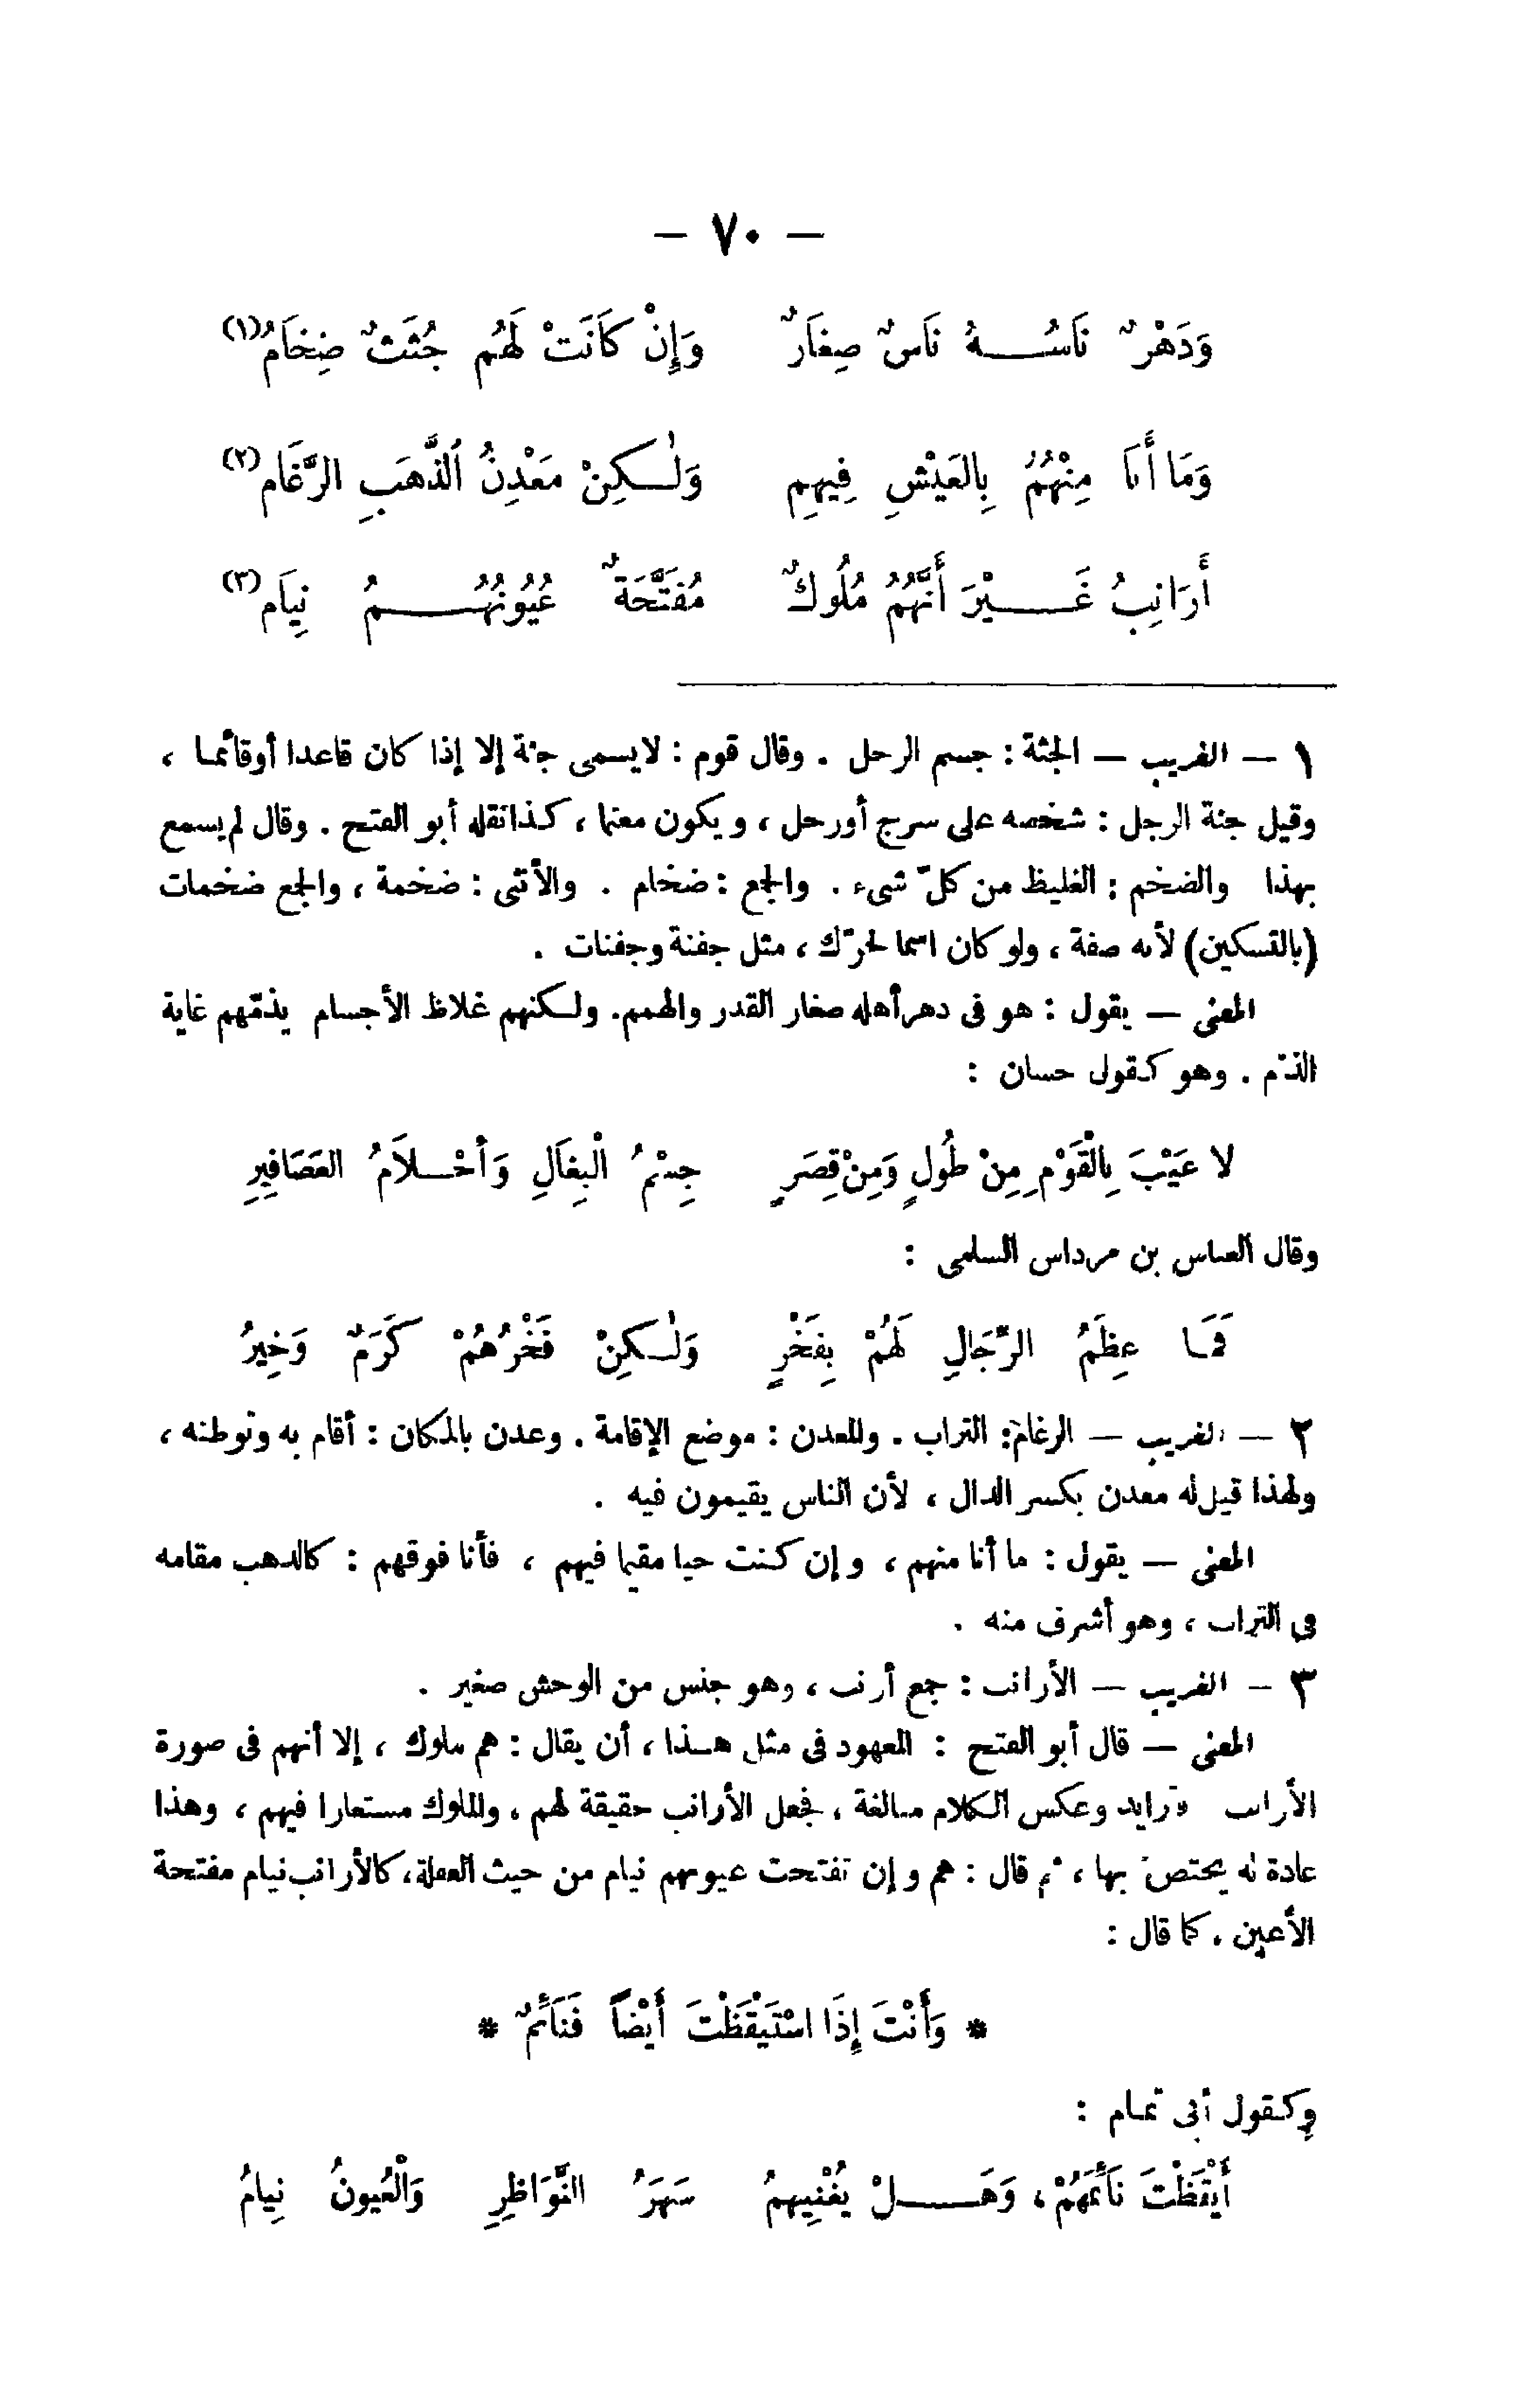 — ٧٠ —
وَدَهْرٌ نَاسُهُ نَاسٌ صِغَارٌ وَإِنْ كَانَتْ لَهُم جُثَثٌ ضِخَامُ (١)
وَمَا أَنَا مِنْهُمُ بِالعَيْشِ فِيهِم وَلٰكِنْ مَعْدِنُ ٱلذَّهَبِ الرَّغَام (٢)
أَرَانِبُ غَيْرَ أَنَّهُمُ مُلُوكٌ مُفَتَّحَةٌ عُيُونُهُمُ نِيَام (٣)
١ — الغريب — الجثة : جسم الرجل . وقال قوم : لايسمى جثة إلا إذا كان قاعدا أوقائما ،
وقيل جثة الرجل : شخصه على سرج أورحل ، ويكون معتما ، كذانقله أبو الفتح . وقال لم يسمع
بهذا والضخم : الغليظ من كلّ شىء . والجمع : ضخام . والأنثى : ضخمة ، والجمع ضخمات
(بالتسكين) لأنه صفة ، ولو كان اسما لحرّك ، مثل جفنة وجفنات .
المعنى — يقول : هو فى دهر أهله صغار القدر والهمم. ولكنهم غلاظ الأجسام يذمّهم غاية
الذمّ . وهو كقول حسان :
لا عَيْبَ بِالْقَوْمِ مِنْ طُولٍ وَمِنْ قِصَرٍ جِسْمُ الْبِغَالِ وَأَحْلاَمُ العَصَافِيرِ
وقال العباس بن مرداس السلمى :
فَمَا عِظَمُ الرِّجَالِ لَهُمْ بِفَخْرٍ وَلٰكِنْ فَخْرُهُمْ كَرَمٌ وَخِيرُ
٢ — الغريب — الرغام: التراب . والمعدن : موضع الإقامة . وعدن بالمكان : أقام به وتوطنه ،
ولهذا قيل له معدن بكسر الدال ، لأن الناس يقيمون فيه .
المعنى — يقول : ما أنا منهم ، وإن كنت حيا مقيما فيهم ، فأنا فوقهم : كالذهب مقامه
فى التراب ، وهو أشرف منه .
٣ — الغريب — الأرانب : جمع أرنب ، وهو جنس من الوحش صغير .
المعنى — قال أبو الفتح : المعهود فى مثل هذا ، أن يقال : هم ملوك ، إلا أنهم فى صورة
الأرانب فزايد وعكس الكلام مبالغة ، فجعل الأرانب حقيقة لهم ، والملوك مستعارا فيهم ، وهذا
عادة له يختصّ بها ، ثم قال : هم وإن تفتحت عيونهم نيام من حيث الغفلة، كالأرانب نيام مفتحة
الأعين . كما قال :
* وَأَنْتَ إِذَا اسْتَيْقَظْتَ أَيْضاً فَنَائمٌ *
وكقول أبى تمام :
أَيْقَظْتَ نَائمَهُمْ ، وَهَلْ يُغْنِيهِمُ سَهَرُ النَّوَاظِرِ وَالْعُيونُ نِيامُ